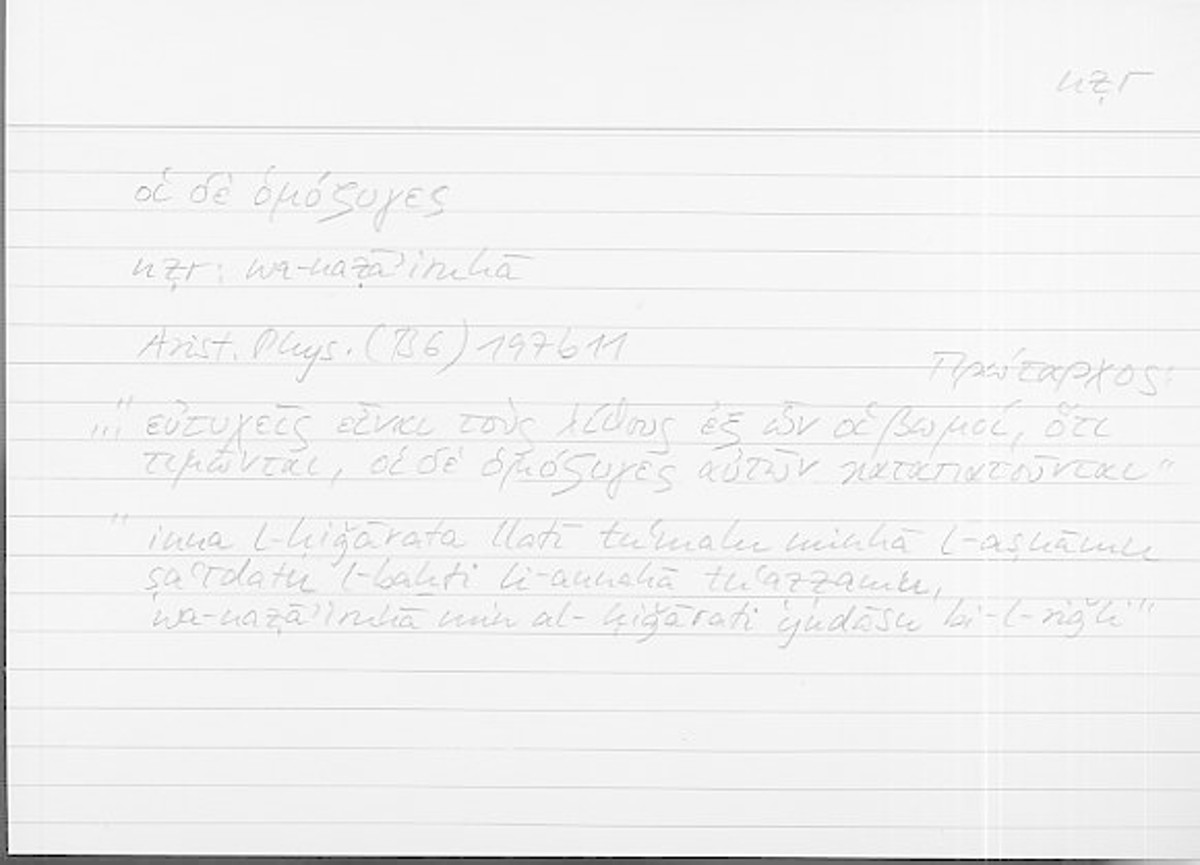 nẓr
οἱ δὲ ὁμόζυγες
nẓr: wa-naẓāʾiruhā
Arist. Phys. (B6) 197b11
Πρώταρχος:
„‚" εὐτυχεῖς εἶναι τοὺς λίθους ἐξ ὧν οἱ βωμοί, ὅτι
τιμῶνται, οἱ δὲ ὁμόζυγες αὐτῶν καταπατοῦνται"
" inna l-ḥiǧārata llatī tuʿmalu minhā l-aṣnāmu
saʿīdatu l-baḫti li-annahā tuʿaẓẓamu,
wa-naẓāʾiruhā min al-ḥiǧārati yudāsu bi-l-riǧli"